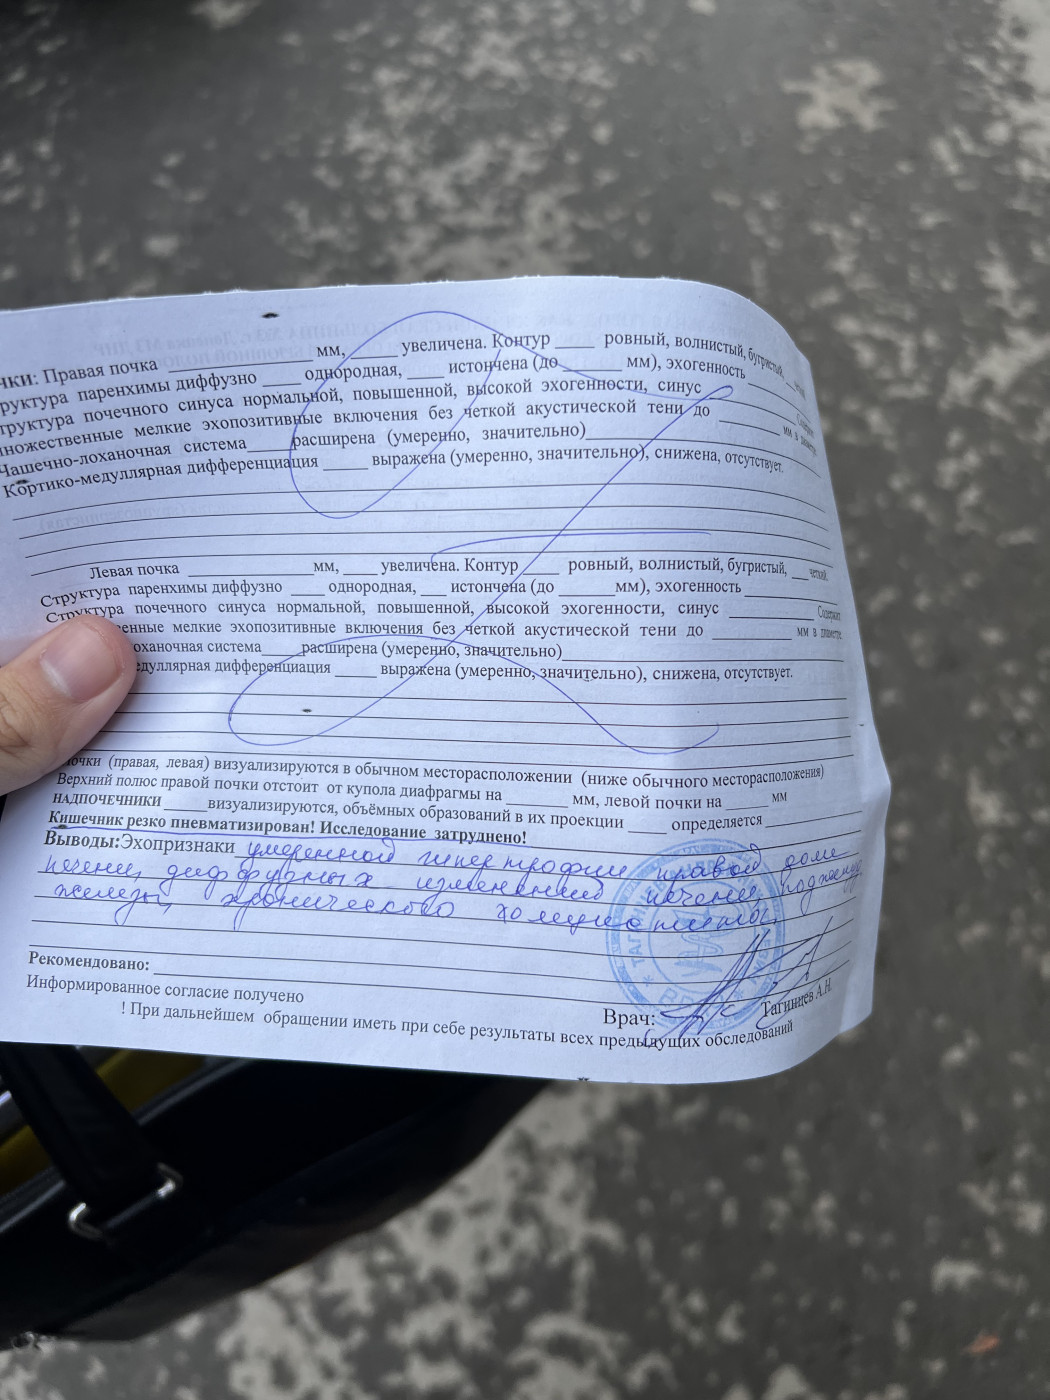 чки: Правая почка ____________ мм, _____ увеличена. Контур ____ ровный, волнистый, бугристый, __
руктура паренхимы диффузно ____ однородная, ____ истончена (до ______ мм), эхогенность ______
труктура почечного синуса нормальной, повышенной, высокой эхогенности, синус ________ Содержит
множественные мелкие эхопозитивные включения без четкой акустической тени до ______ мм в диаметре.
Чашечно-лоханочная система_____расширена (умеренно, значительно)____________
Кортико-медуллярная дифференциация _____ выражена (умеренно, значительно), снижена, отсутствует.
Левая почка ____________мм, ____ увеличена. Контур ____ ровный, волнистый, бугристый, __четкий.
Структура паренхимы диффузно ____ однородная, ___ истончена (до ______мм), эхогенность ________
Структура почечного синуса нормальной, повышенной, высокой эхогенности, синус ________ Содержит
енные мелкие эхопозитивные включения без четкой акустической тени до ________ мм в диаметре.
оханочная система_____расширена (умеренно, значительно)____________
едуллярная дифференциация _____ выражена (умеренно, значительно), снижена, отсутствует.
очки (правая, левая) визуализируются в обычном месторасположении (ниже обычного месторасположения)
Верхний полюс правой почки отстоит от купола диафрагмы на ______ мм, левой почки на _____ мм
НАДПОЧЕЧНИКИ ____визуализируются, объёмных образований в их проекции ____ определяется ________
Кишечник резко пневматизирован! Исследование затруднено!
Выводы:Эхопризнаки умеренной гипертрофии правой доли
печени, диффузных изменений печени, поджелуд.
железы, хронического холецистита.
Рекомендовано: ____________
Информированное согласие получено
Врач: Тагинцев А.Н.
! При дальнейшем обращении иметь при себе результаты всех предыдущих обследований